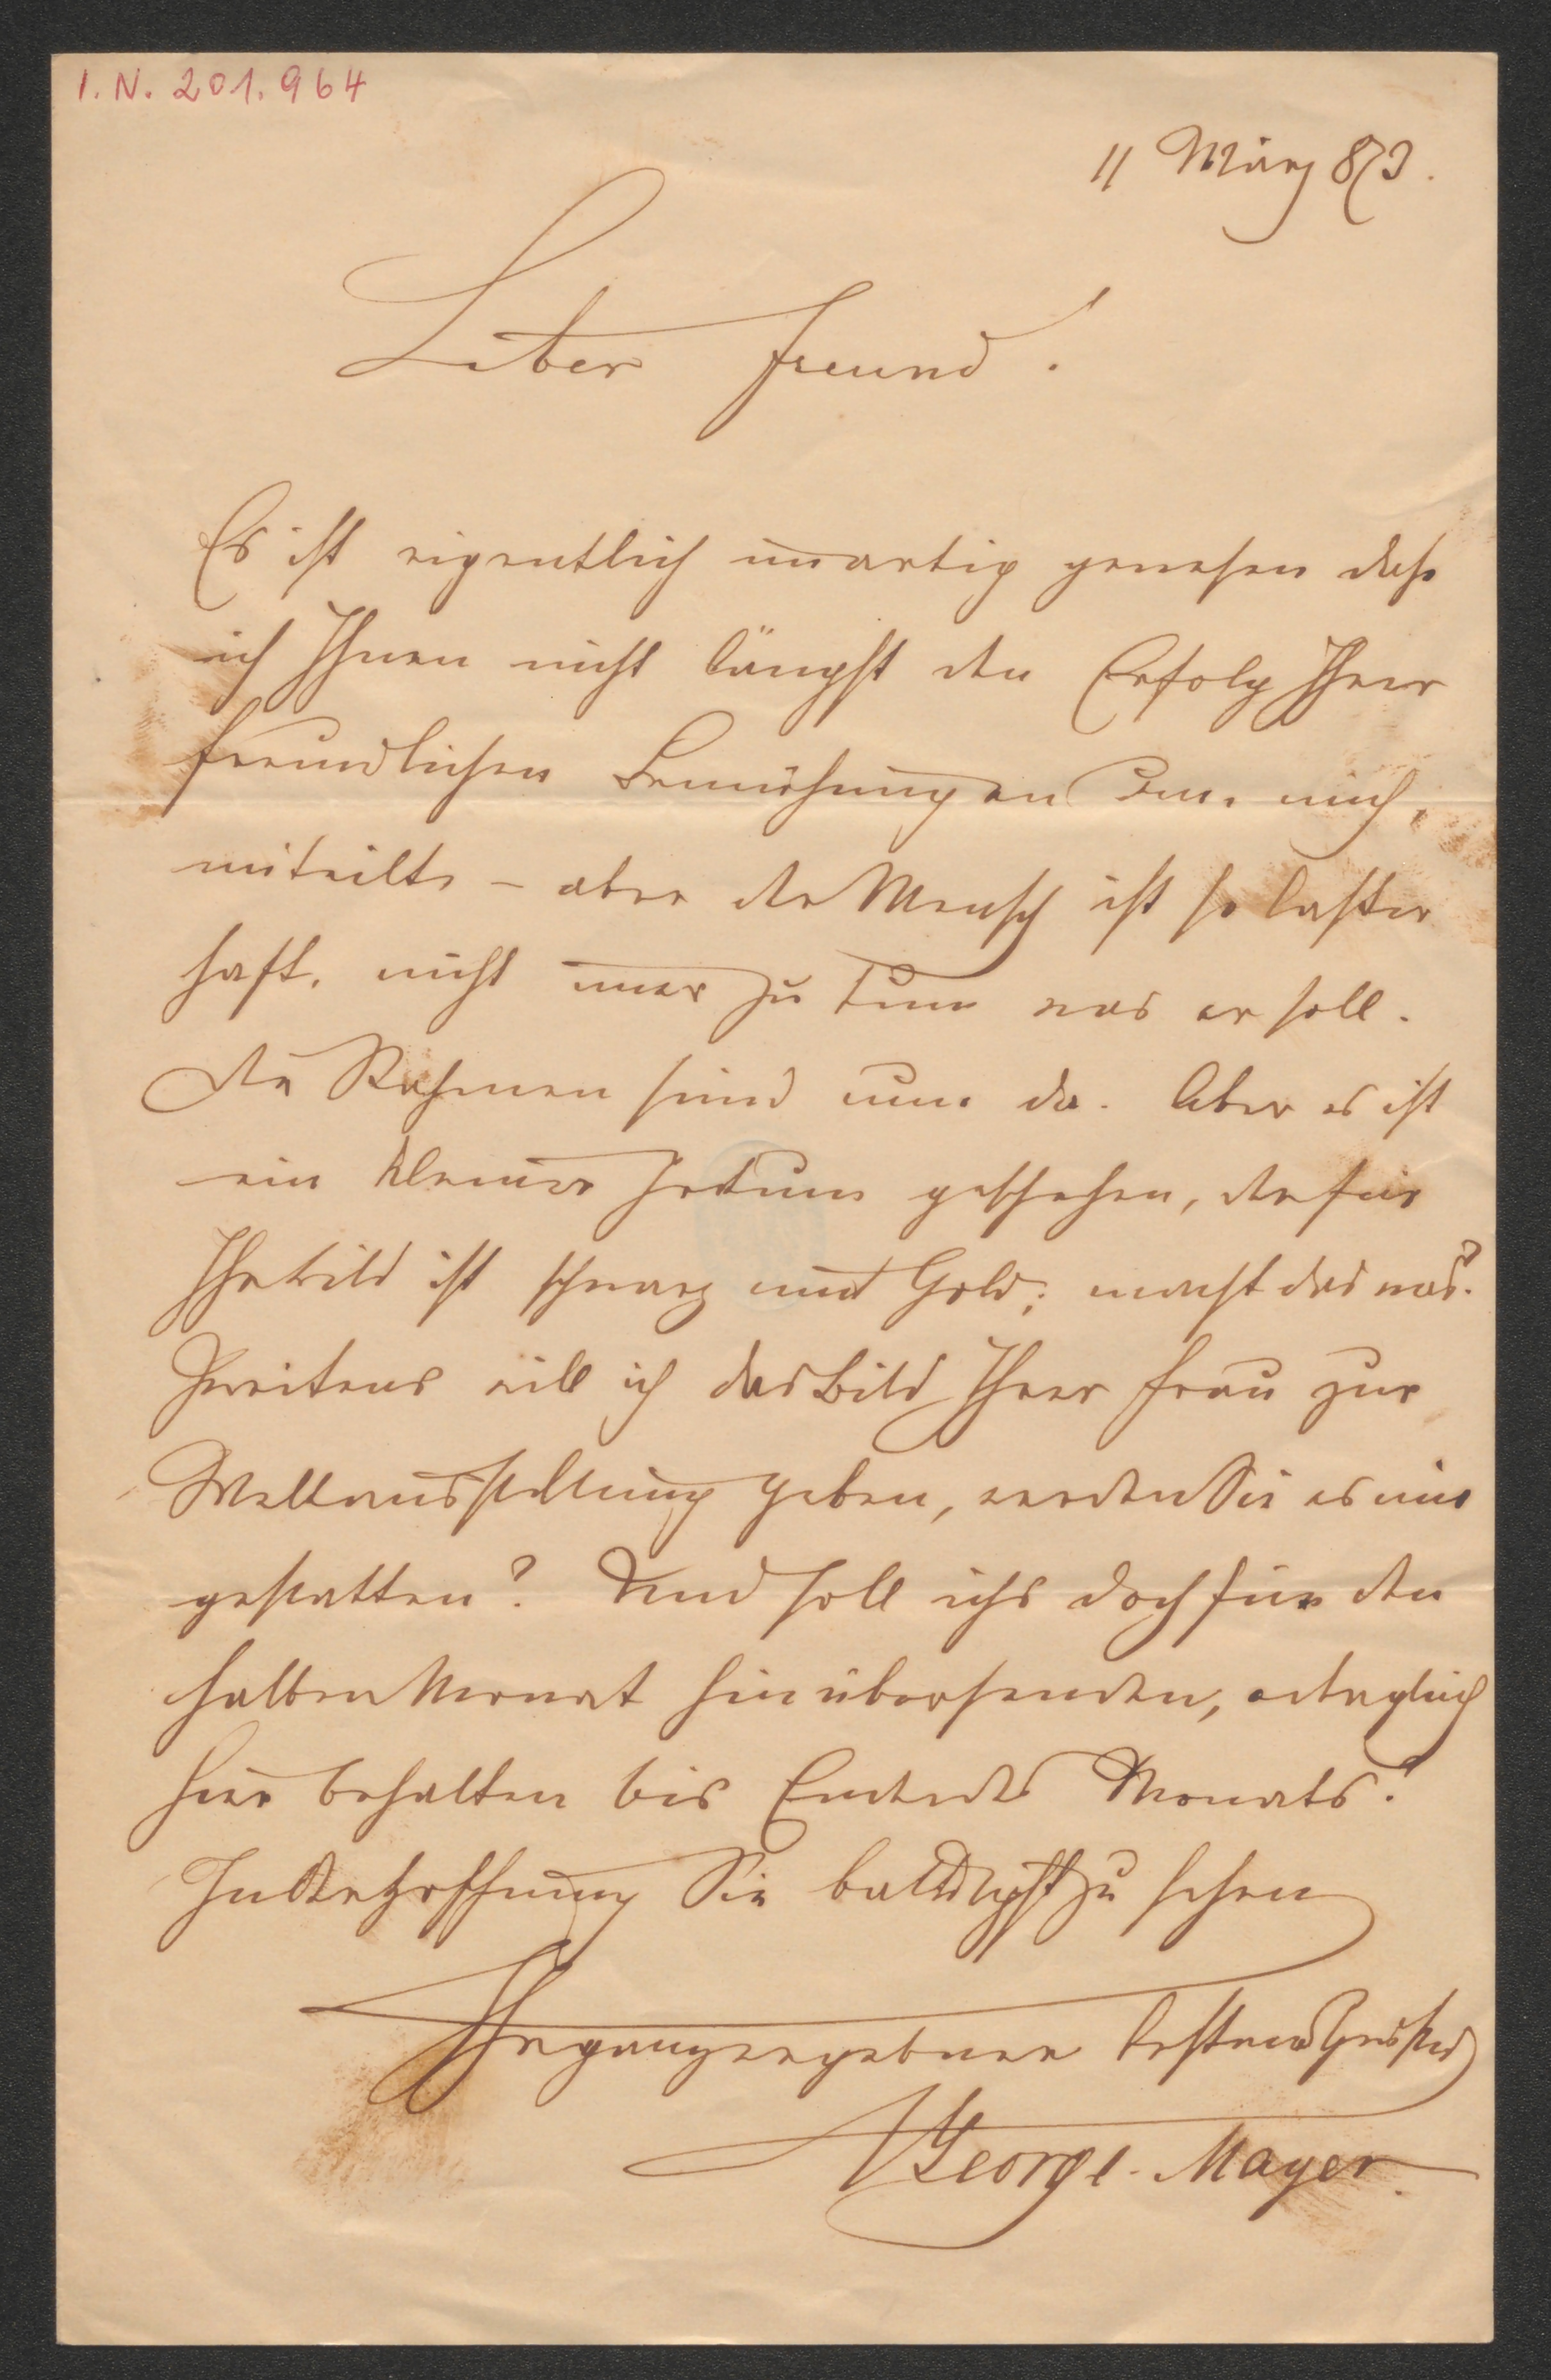 I.N. 201.964
11 März 873.
Lieber Freund!
Es ist eigentlich unartig gewesen dass
ich Ihnen nicht längst den Erfolg Ihrer
freundlichen Bemühungen um mich,
mitteilte – aber der Mensch ist so laster
haft, nicht immer zu tun was er soll.
Die Rahmen sind nun da. Aber es ist
ein kleiner Irrtum geschehen, der für
Ihr Bild ist schwarz und Gold; macht das was?
Zweitens will ich das Bild Ihrer Frau zur
Weltausstellung geben, werden Sie es mir
gestatten? Und soll ichs doch für den
halben Monat hinübersenden, oder gleich
hier behalten bis Ende des Monats?
In der Hoffnung Sie baldigst zu sehen
Ihr ganz ergebener
George-Mayer